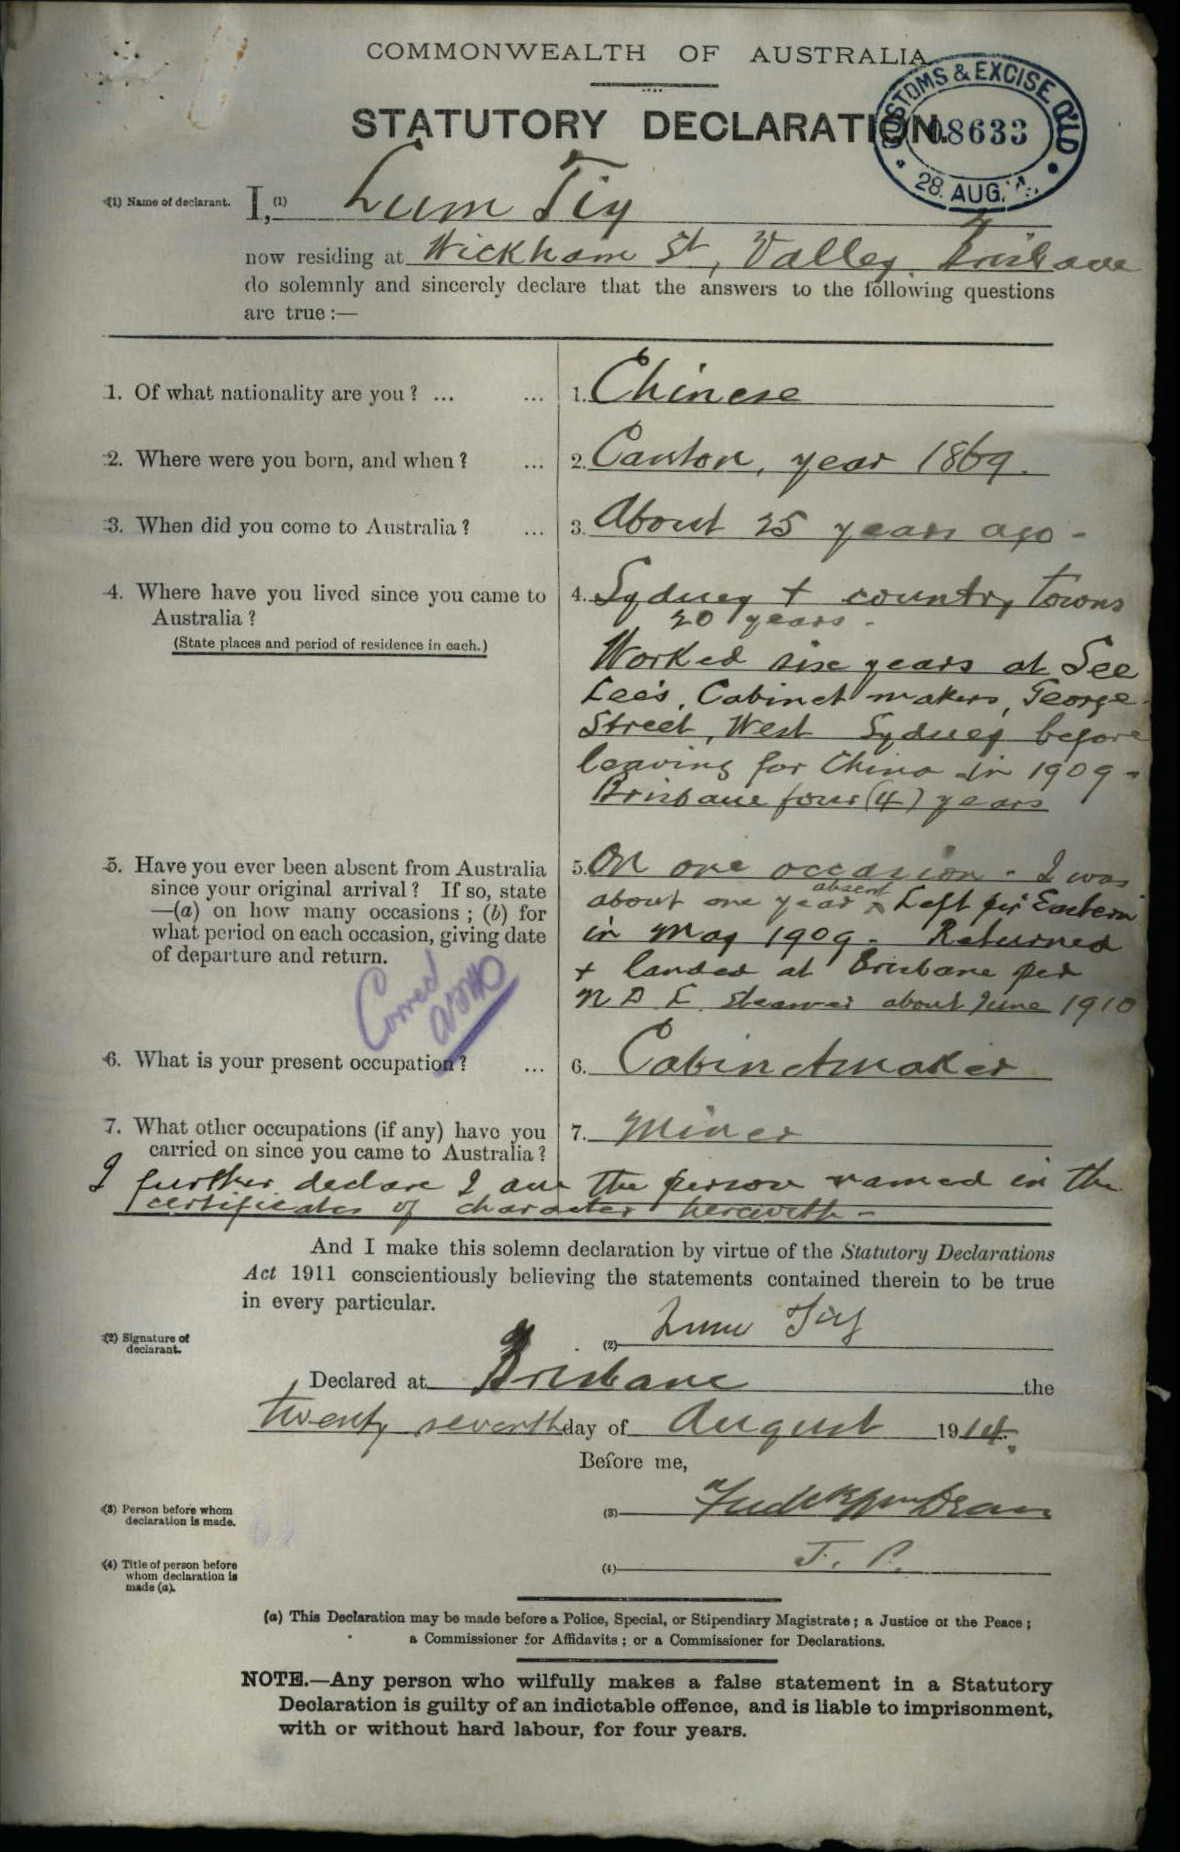 COMMONWEALTH OF AUSTRALIA
STATUTORY DECLARATION.
CUSTOMS & EXCISE QLD
08633
28. AUG.
(1) Name of declarant.
I, (1) Lum Tiy
now residing at Wickham St, Valley, Brisbane
do solemnly and sincerely declare that the answers to the following questions
are true :—
1. Of what nationality are you ? ... ... 1. Chinese
2. Where were you born, and when ? ... 2. Canton, year 1869.
3. When did you come to Australia ? ... 3. About 25 years ago -
4. Where have you lived since you came to
Australia ?
(State places and period of residence in each.)
4. Sydney + country towns
20 years -
Worked six years at See
Lee's, Cabinet makers, George
Street, West Sydney before
leaving for China in 1909 -
Brisbane four (4) years
5. Have you ever been absent from Australia
since your original arrival ? If so, state
—(a) on how many occasions ; (b) for
what period on each occasion, giving date
of departure and return.
5. On one occasion - I was
about one year absent Left per Eastern
in May 1909 - Returned
+ landed at Brisbane per
N D L steamer about June 1910
Correct
6. What is your present occupation ? ... 6. Cabinetmaker
7. What other occupations (if any) have you
carried on since you came to Australia ?
7. Miner
I further declare I am the person named in the
certificates of character herewith -
And I make this solemn declaration by virtue of the Statutory Declarations
Act 1911 conscientiously believing the statements contained therein to be true
in every particular.
(2) Signature of
declarant.
(2) Lum Tiy
Declared at Brisbane the
twenty seventh day of August 1914.
Before me,
(3) Person before whom
declaration is made.
(3)
(4) Title of person before
whom declaration is
made (a).
(4) J. P.
(a) This Declaration may be made before a Police, Special, or Stipendiary Magistrate ; a Justice of the Peace ;
a Commissioner for Affidavits ; or a Commissioner for Declarations.
NOTE.—Any person who wilfully makes a false statement in a Statutory
Declaration is guilty of an indictable offence, and is liable to imprisonment,
with or without hard labour, for four years.